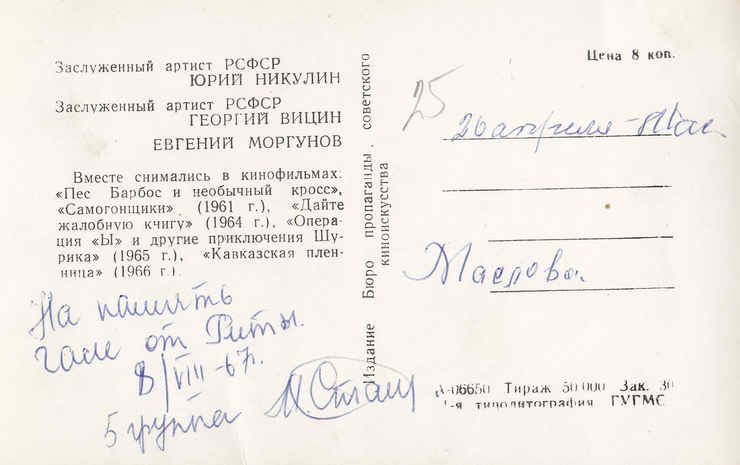 Заслуженный артист РСФСР
ЮРИЙ НИКУЛИН
Заслуженный артист РСФСР
ГЕОРГИЙ ВИЦИН
ЕВГЕНИЙ МОРГУНОВ
Вместе снимались в кинофильмах:
«Пес Барбос и необычный кросс»,
«Самогонщики» (1961 г.), «Дайте
жалобную книгу» (1964 г.), «Опера-
ция «Ы» и другие приключения Шу-
рика» (1965 г.), «Кавказская плен-
ница» (1966 г.).
На память
Гале от Риты.
8/VIII-67г.
5 группа
Издание Бюро пропаганды советского
киноискусства
Цена 8 коп.
25
26 апреля
Маслова
А-06650 Тираж 50 000 Зак. 30
1-я типолитография ГУГМС